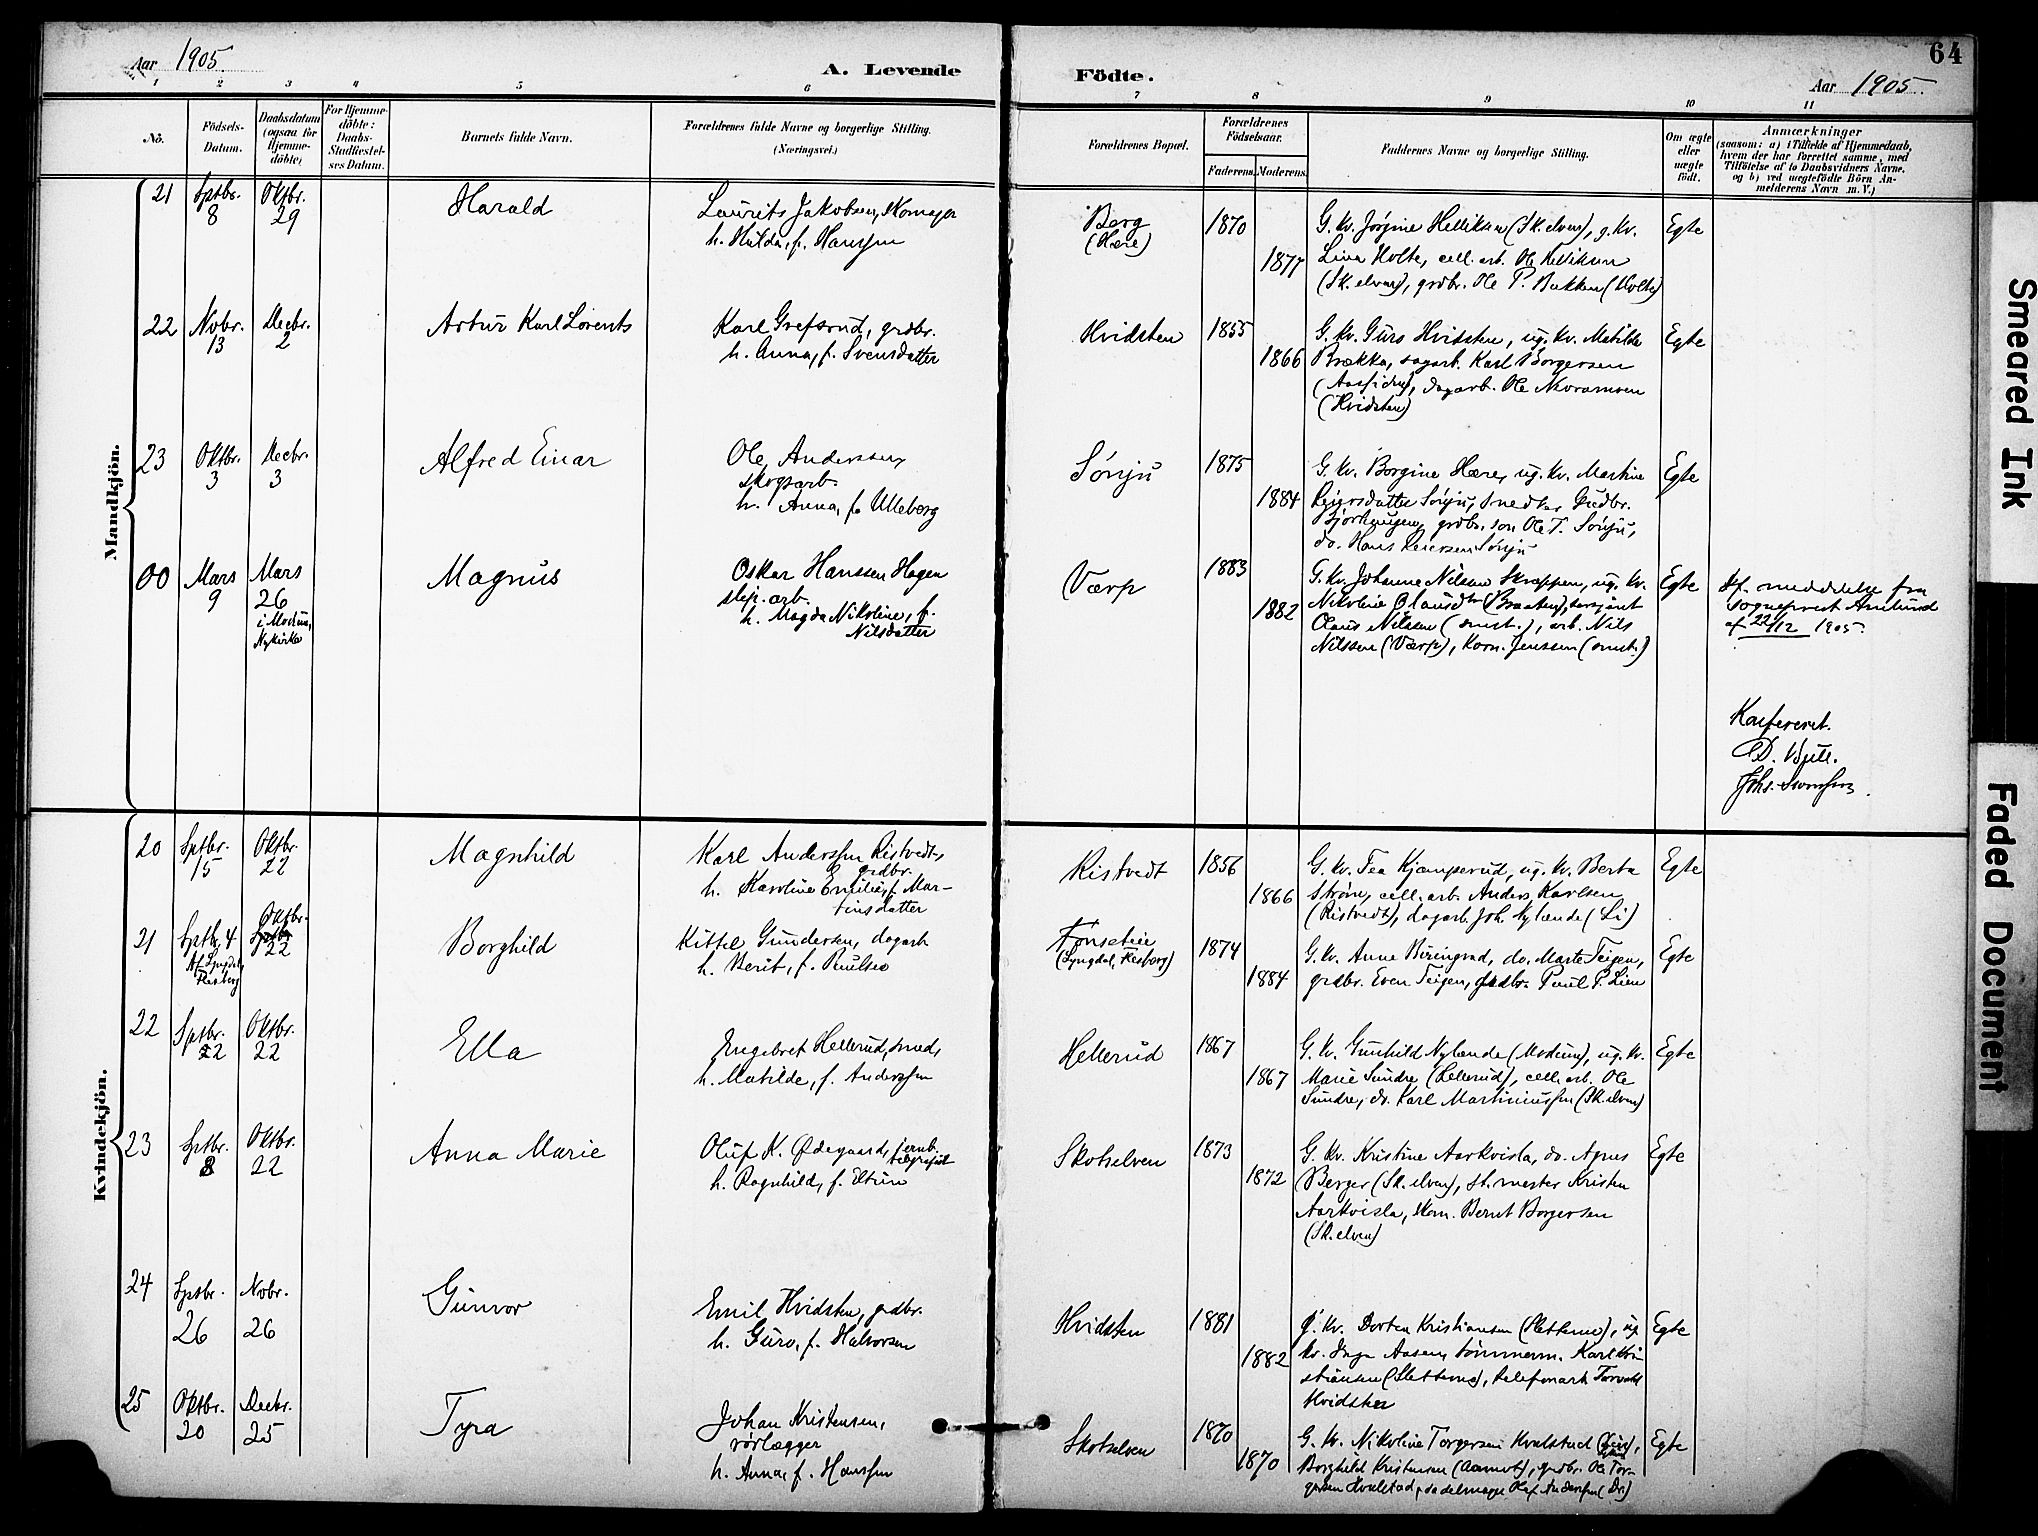 Aar 1905.
A. Levende
Födte.
Aar 1905.
64
1 2 3 4 5 6 7 8 9 10 11
No.
Födsels-Datum.
Daabsdatum (ogsaa for Hjemme-döbte)
For Hjemme-döbte: Daabs-Stadfæstel-ses Datum.
Barnets fulde Navn.
Forældrenes fulde Navne og borgerlige Stilling.
(Næringsvei.)
Forældrenes Bopæl.
Forældrenes Födselsaar.
Faderens. Moderens.
Faddernes Navne og borgerlige Stilling.
Om ægte eller uægte födt.
Anmærkninger
(saasom: a) i Tilfælde af Hjemmedaab,
hvem der har forrettet samme, med
Tilföielse af to Daabsvidners Navne.
og b) ved uægtefödte Börn An-
melderens Navn m. V.)
Mandkjön.
21 Sptbr. 8 Oktbr. 29 Harald
Laurits Jakobsen, skomager
h. Hulda, f. Hanssen
Berg
(Hære)
1870
1877
G. kv. Jørgine Helliksen (Sk.elven), g. kv.
Lina Holte, cell. arb. Ole Helliksen
(Sk. elven), grdbr. Ole P. Bakken (Holte)
Egte
22 Novbr. 13 Decbr. 2 Artur Karl Lorents
Karl Grefsrud, grdbr.
h. Anna, f. Svensdatter
Hvidsten
1855
1866
G. kv. Guro Hvidsten, ug. kv. Matilde
Brækka, sagarb. Karl Borgersen
dagarb. Ole
(Hvidsten)
Egte
23 Oktbr. 3 Decbr. 3 Alfred Einar
Ole Anderssen,
skogsarb.
h. Anna, f. Ulleberg
Sønju
1875
1884
G. kv. Borgine Hære, ug. kv. Martine
Reiersdatter Sønju, Gudbr.
grdbr. søn Ole T. Sønju,
do. Hans Reiersen Sønju
Egte
00 Mars 9 Mars 26 i Modum, Nykirke
Magnus
Oskar Hanssen Hagen
slip. arb.
h. Magda Nikoline, f.
Nilsdatter
Værp
1883
1882
G. kv. Johanne Nilsen Skreppen, ug. kv.
Nikoline Olausdtr (Braaten),
Olaus Nilsen arb. Nils
Nilssen (Værp), Korn. Jenssen
Egte
Jf. meddelelse fra
sogneprest Amlund
af 22/12 1905.
Konfereret.
Johs. Svendsen.
Kvindekjön.
20 Sptbr. 15 Oktbr. 22 Magnhild
Karl Anderssen Ristvedt,
grdbr.
h. Karoline Emilie, f. Mar-
tinsdatter
Ristvedt
1856
1866
G. kv. Tea Kjæmperud, ug. kv. Berta
Strøm, cell. arb. Anders Karlsen
(Ristvedt), dagarb. Joh. Nylænde (Li)
Egte
21 Sptb. 4 Oktbr. 22
Borghild
Kittel Gundersen, dagarb
h. Berit, f. Paulsen
(Lyngdal, Flesberg)
1874
1884
G. kv. Anne Biringrud, do. Marte Teigen,
grdbr. Even Teigen, grdbr. Paul P. Lien
Egte
22 Sptbr. 22 Oktbr. 22 Ella
Engebret Hellerud, smed,
h. Matilde, f. Anderssen
Hellerud
1867
1867
G. kv. Gunhild Nylænde (Modum), ug. kv.
Marie Sundre (Hellerud), cell. arb. Ole
Sundre, do. Karl Martiniussen (Sk. elven)
Egte
23 Sptbr. 8 Oktbr. 22 Anna Marie
Oluf K. Ødegaard, jernb.
telegrafist
h. Ragnhild, f. Eltun
Skotselven
1873
1872
G. kv. Kristine Aarkvisla, do. Agnes
Berger (Sk. elven), st. mester Kristen
Aarkvisla, skom. Bernt Borgersen
(Sk. elven)
Egte
24 Sptbr. 26 Novbr. 26 Gunvor
Emil Hvidsten, grdbr.
h. Guro, f. Halvorsen
Hvidsten
1881
1882
G. kv. Dortea Kristiansen (Sletterne), ug.
kv. Inga Aasen, tømmerm. Karl Kri-
stiansen (Sletterne), telefonarb. Torvald
Hvidsten
Egte
25 Oktbr. 20 Decbr. 25 Tyra
Johan Kristensen,
rørlægger
h. Anna, f. Hanssen
Skotselven
1870
1870
G. kv. Nikoline Torgersen Kvalstad
Borghild Kristensen (Aamot), grdbr. Ole Tor-
gersen Kvalstad, sadelmager Olaf Anderssen (Dr.)
Egte
Smeared Ink
Faded Document